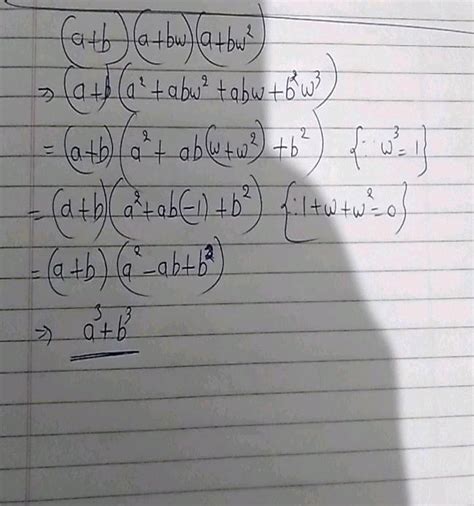 (a+b)(a+bw)(a+bw²)
⇒ (a+b)(a²+abw²+abw+b²w³)
= (a+b)(a²+ab(w+w²)+b²) {∵ w³=1}
= (a+b)(a²+ab(-1)+b²) {∵1+w+w²=0}
= (a+b)(a²-ab+b²)
⇒ a³+b³